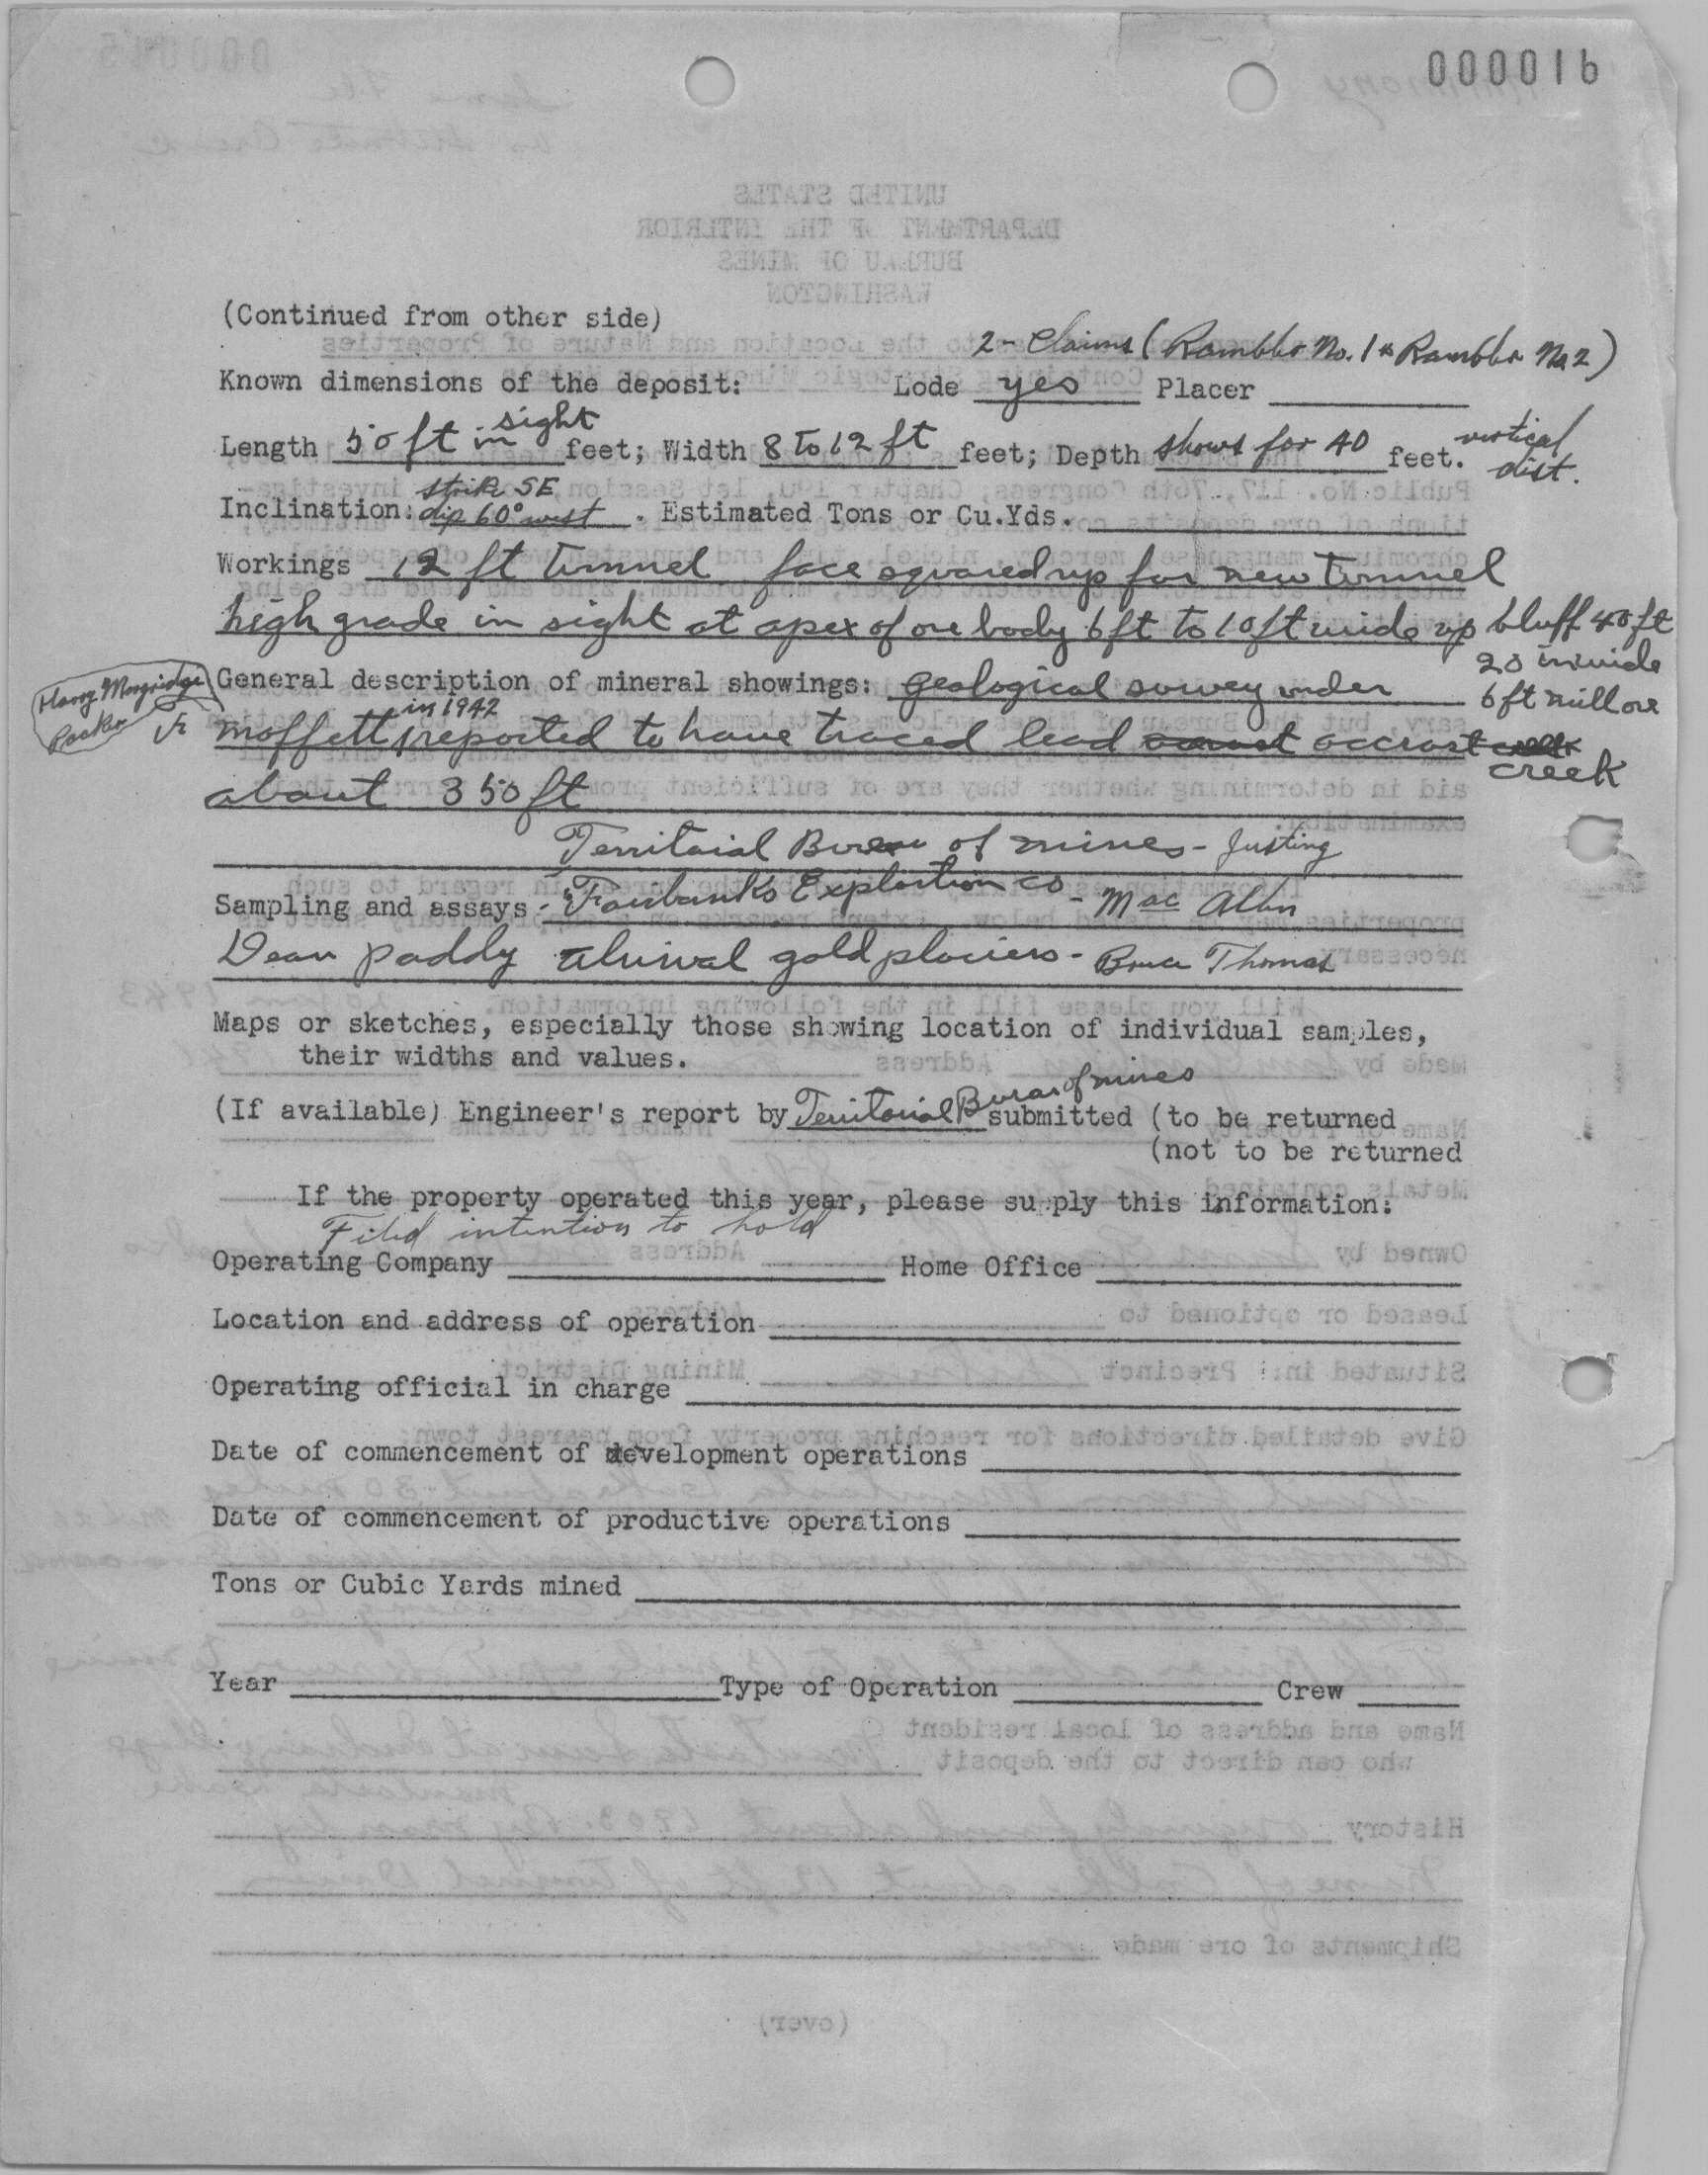 000016
(Continued from other side)
2- Claims (Rambler No. 1 & Rambler No 2)
Known dimensions of the deposit: Lode yes Placer
Length 50 ft in sight feet; Width 8 to 12 ft feet; Depth shows for 40 feet. vertical dist.
Inclination: strike SE dip 60° west. Estimated Tons or Cu.Yds.
Workings 12 ft tunnel face squared up for new tunnel
high grade in sight at apex of ore body 6 ft to 10 ft wide up bluff 40 ft
20 in wide
6 ft mill ore
Harry
General description of mineral showings: geological survey under
moffett in 1942 reported to have traced lead accrost
creek
about 350 ft
Territoial Bureau of mines - Justing
Sampling and assays - Fairbanks Exploration co - Mac
Dean Paddy aluival gold placiers - Bruce Thomas
Maps or sketches, especially those showing location of individual samples,
their widths and values.
(If available) Engineer's report by Territorial Burau of mines submitted (to be returned
(not to be returned
If the property operated this year, please supply this information:
Filed intention to hold
Operating Company Home Office
Location and address of operation
Operating official in charge
Date of commencement of development operations
Date of commencement of productive operations
Tons or Cubic Yards mined
Year Type of Operation Crew